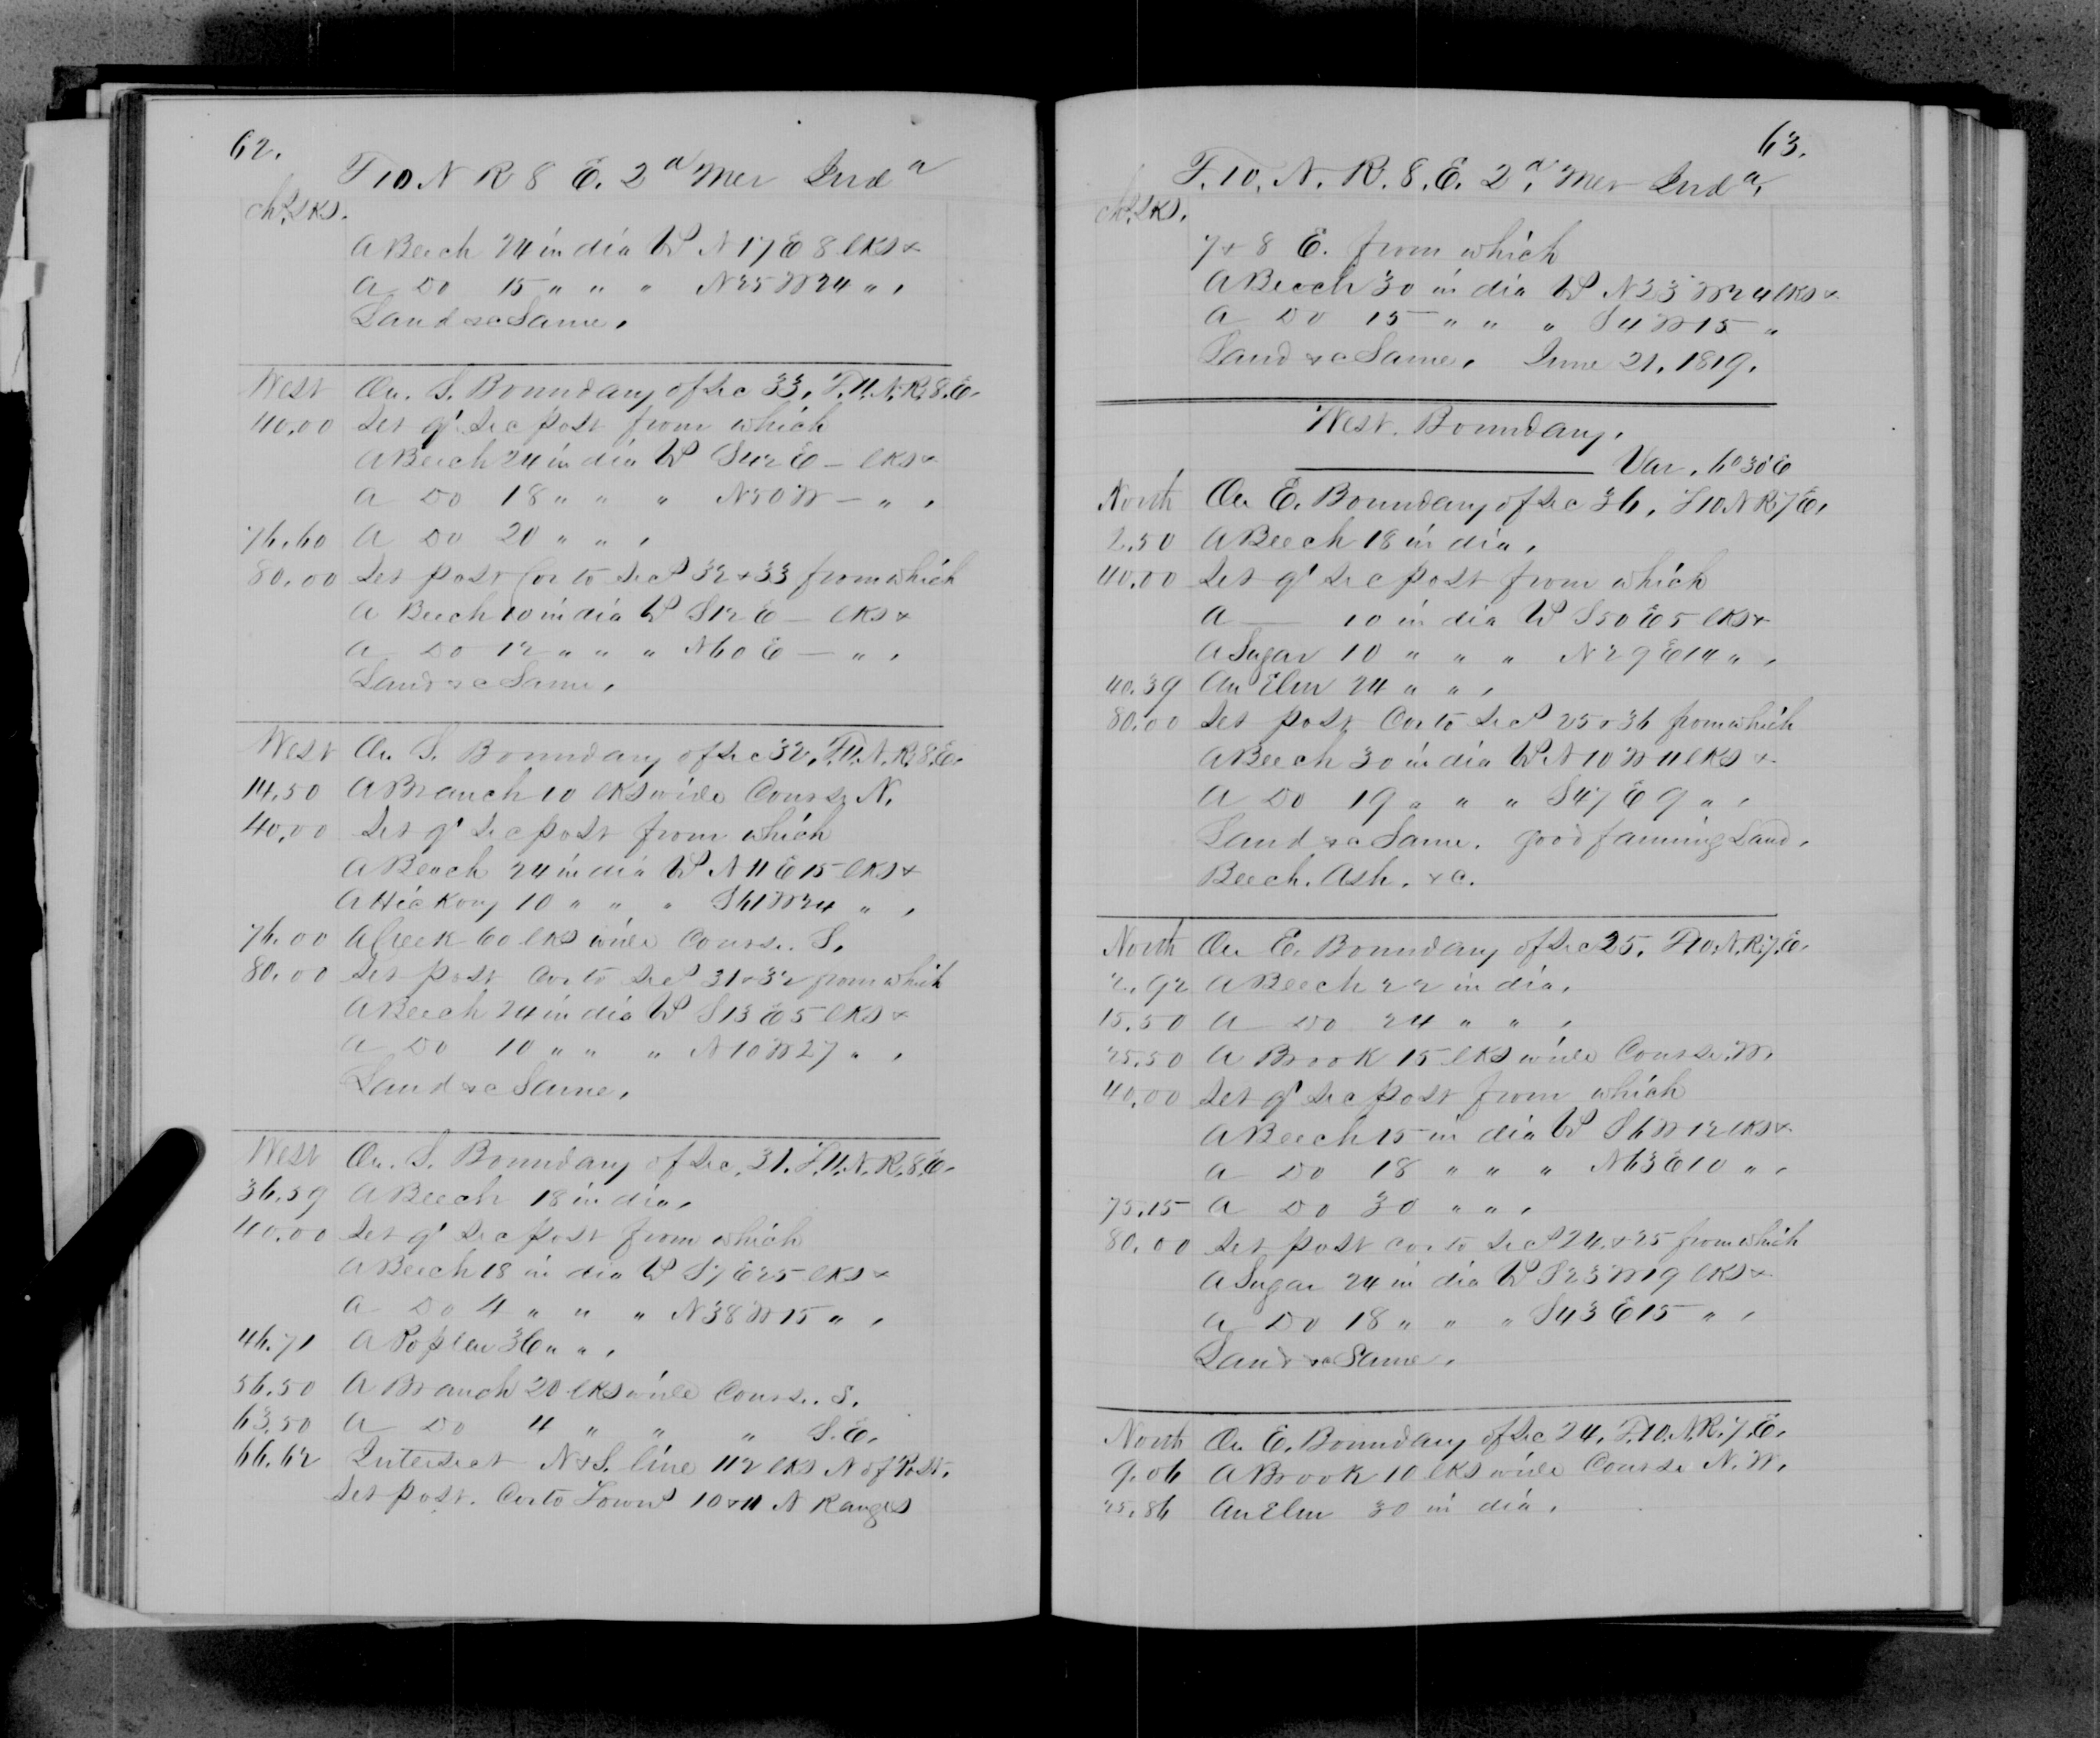 62.
T 10 N R 8 E. 2d Mer Inda
chs. lks.
A Beech 24 in dia Bs N 17 E 8 lks &
A Do 15 " " " N 25 W 24 " ,
Land &c Same,
West On. S. Boundary of Sec 33, T. 11. N. R. 8. E.
40.00 Set qr Sec post from which
A Beech 24 in dia Bs S 42 E — lks &
A Do 18 " " " N 50 W — " ,
76.60 A Do 20 " " ,
80.00 Set post Cor to Secs 32 & 33 from which
A Beech 10 in dia Bs S 12 E — lks &
A Do 12 " " " N 60 E — " ,
Land &c Same,
West On. S. Boundary of Sec 32, T. 11. N. R. 8. E.
14.50 A Branch 10 lks wide Course N.
40.00 Set qr Sec post from which
A Beech 24 in dia Bs N 11 E 15 lks &
A Hickory 10 " " " S 61 W 24 " ,
76.00 A Creek 60 lks wide Course. S.
80.00 Set post Cor to Secs 31 & 32 from which
A Beech 24 in dia Bs S 13 E 5 lks &
A Do 10 " " " N 10 W 27 " ,
Land &c Same,
West On. S. Boundary of Sec. 31. T. 11. N. R. 8. E.
36.59 A Beech 18 in dia,
40.00 Set qr Sec post from which
A Beech 18 in dia Bs S 7 E 25 lks &
A Do 4 " " " N 38 W 15 " ,
46.71 A Poplar 36 " " ,
56.50 A Branch 20 lks wide Course. S.
63.50 A Do 4 " " " S. E.
66.62 Intersect N & S. line 112 lks N of Post.
Set post. Cor to Towns 10 & 11 N Ranges
63.
T. 10. N. R. 8. E. 2d. Mer Inda.
chs. lks.
7 & 8 E. from which
A Beech 30 in dia Bs N 23 W 24 lks &
A Do 15 " " " S 4 W 15 "
Land &c Same, June 21. 1819.
West. Boundary.
Var. 6° 30' E
North On E. Boundary of Sec 36, T 10 N R 7 E,
2.50 A Beech 18 in dia,
40.00 Set qr Sec post from which
A — 10 in dia Bs S 50 E 5 lks &
A Sugar 10 " " " N 29 E 14 " ,
40.39 An Elm 24 " " ,
80.00 Set post Cor to Secs 25 & 36 from which
A Beech 30 in dia Bs N 10 W 11 lks &
A Do 19 " " " S 47 E 9 " ,
Land &c Same. good farming Land,
Beech. Ash. &c.
North On E. Boundary of Sec 25. T 10. N. R. 7. E.
2.92 A Beech 22 in dia,
15.50 A Do 24 " " ,
25.50 A Brook 15 lks wide Course. W.
40.00 Set qr Sec post from which
A Beech 15 in dia Bs S 6 W 12 lks &
A Do 18 " " " N 63 E 10 " ,
75.15 A Do 30 " " ,
80.00 Set post cor to Secs 24. & 25 from which
A Sugar 24 in dia Bs S 23 W 19 lks &
A Do 18 " " " S 43 E 15 " ,
Land &c Same,
North On E. Boundary of Sec 24, T. 10. N. R. 7. E.
9.06 A Brook 10 lks wide Course N. W.
25.86 An Elm 30 in dia,